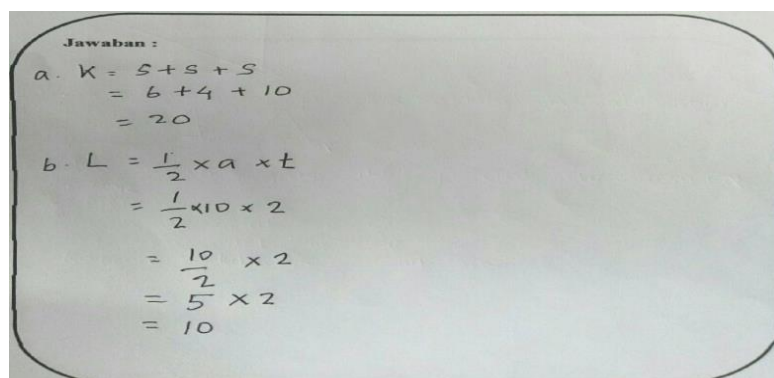 Jawaban :
a. K = s + s + s
= 6 + 4 + 10
= 20
b. L = 1/2 × a × t
= 1/2 × 10 × 2
= 10/2 × 2
= 5 × 2
= 10